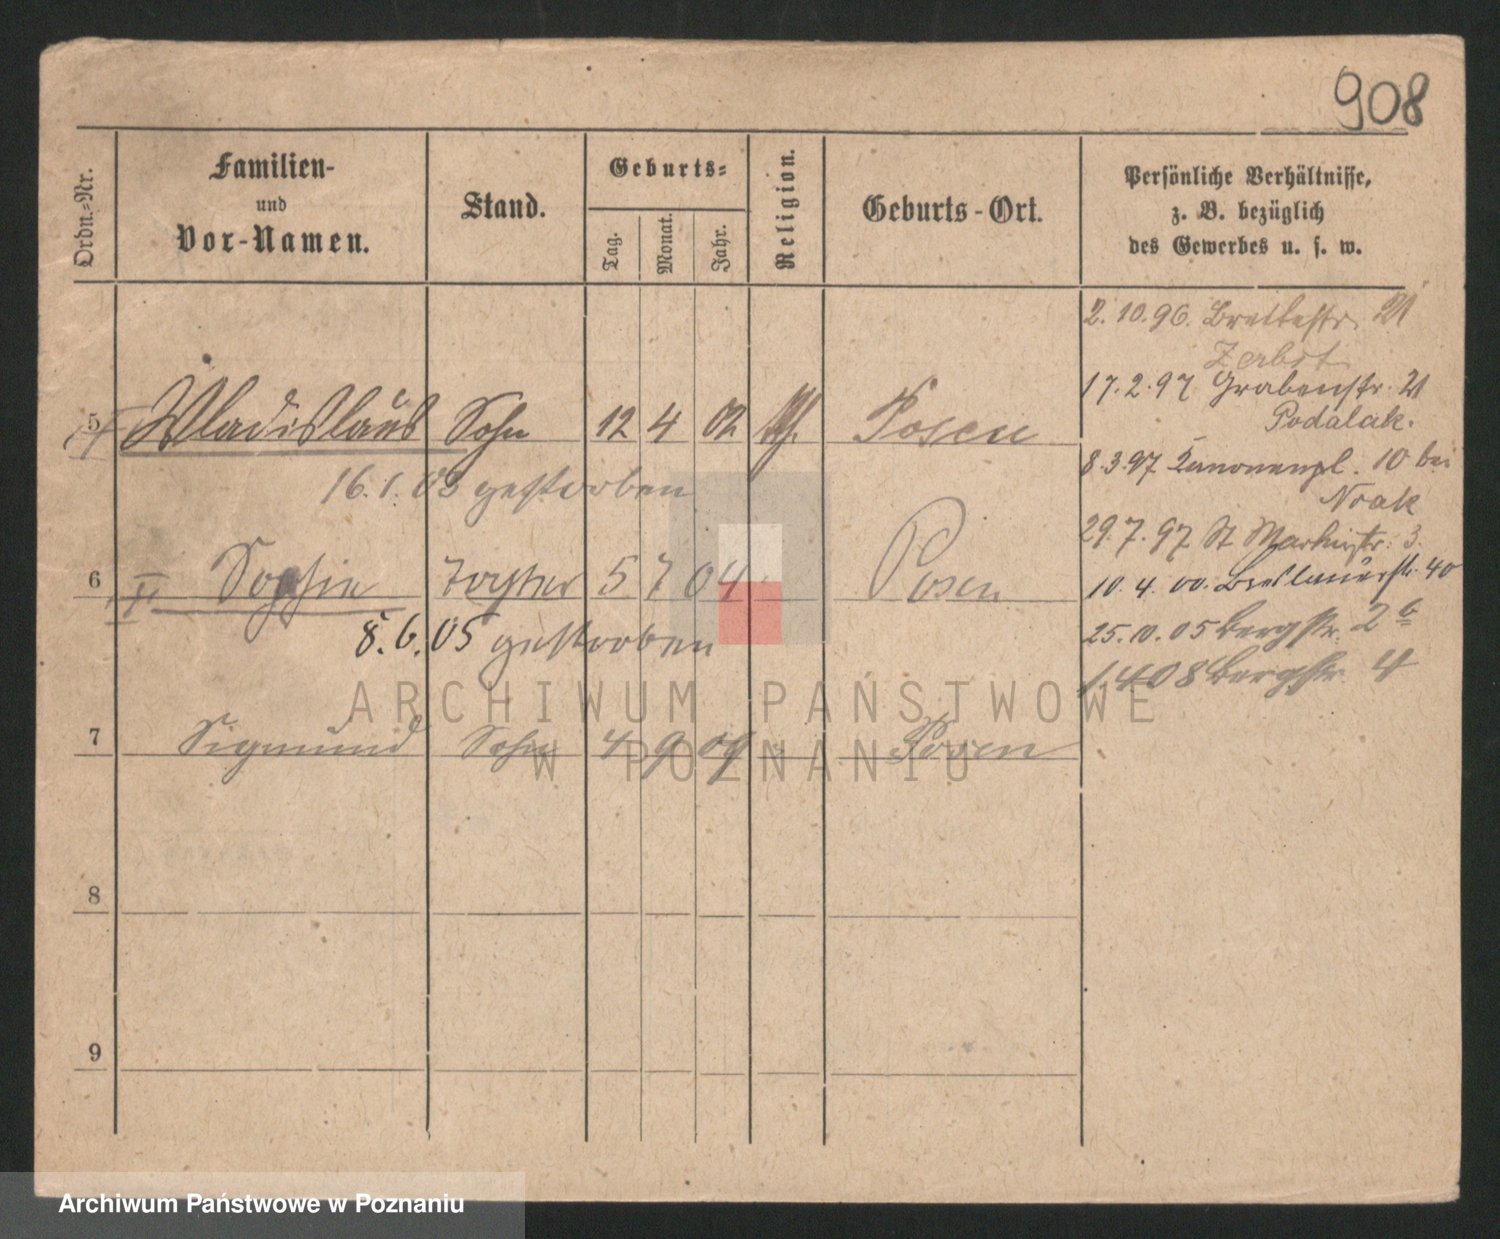 908
Ordn.-Nr.
Familien-
und
Vor-Namen.
Stand.
Geburts-
Tag.
Monat.
Jahr.
Religion.
Geburts-Ort.
Persönliche Verhältnisse,
z. B. bezüglich
des Gewerbes u. s. w.
5 Wladislaus Sohn 12 4 02 Posen
16.1.03 gestorben
6 II Sophie Tochter 5 7 04 Posen
8.6.05 gestorben
7 Sigmund Sohn 4 9 09 Posen
8
9
2.10.96. Breitestr. 21
Zerbst
17.2.97 Grabenstr. 21
Podalak.
8.3.97 Kanonenpl. 10 bei
Noak
29.7.97 St Martinstr. 3.
10.4.00. Breslauerstr. 40
25.10.05 Bergstr. 2
1.4.08 Bergstr. 4
ARCHIWUM PAŃSTWOWE
W POZNANIU
Archiwum Państwowe w Poznaniu